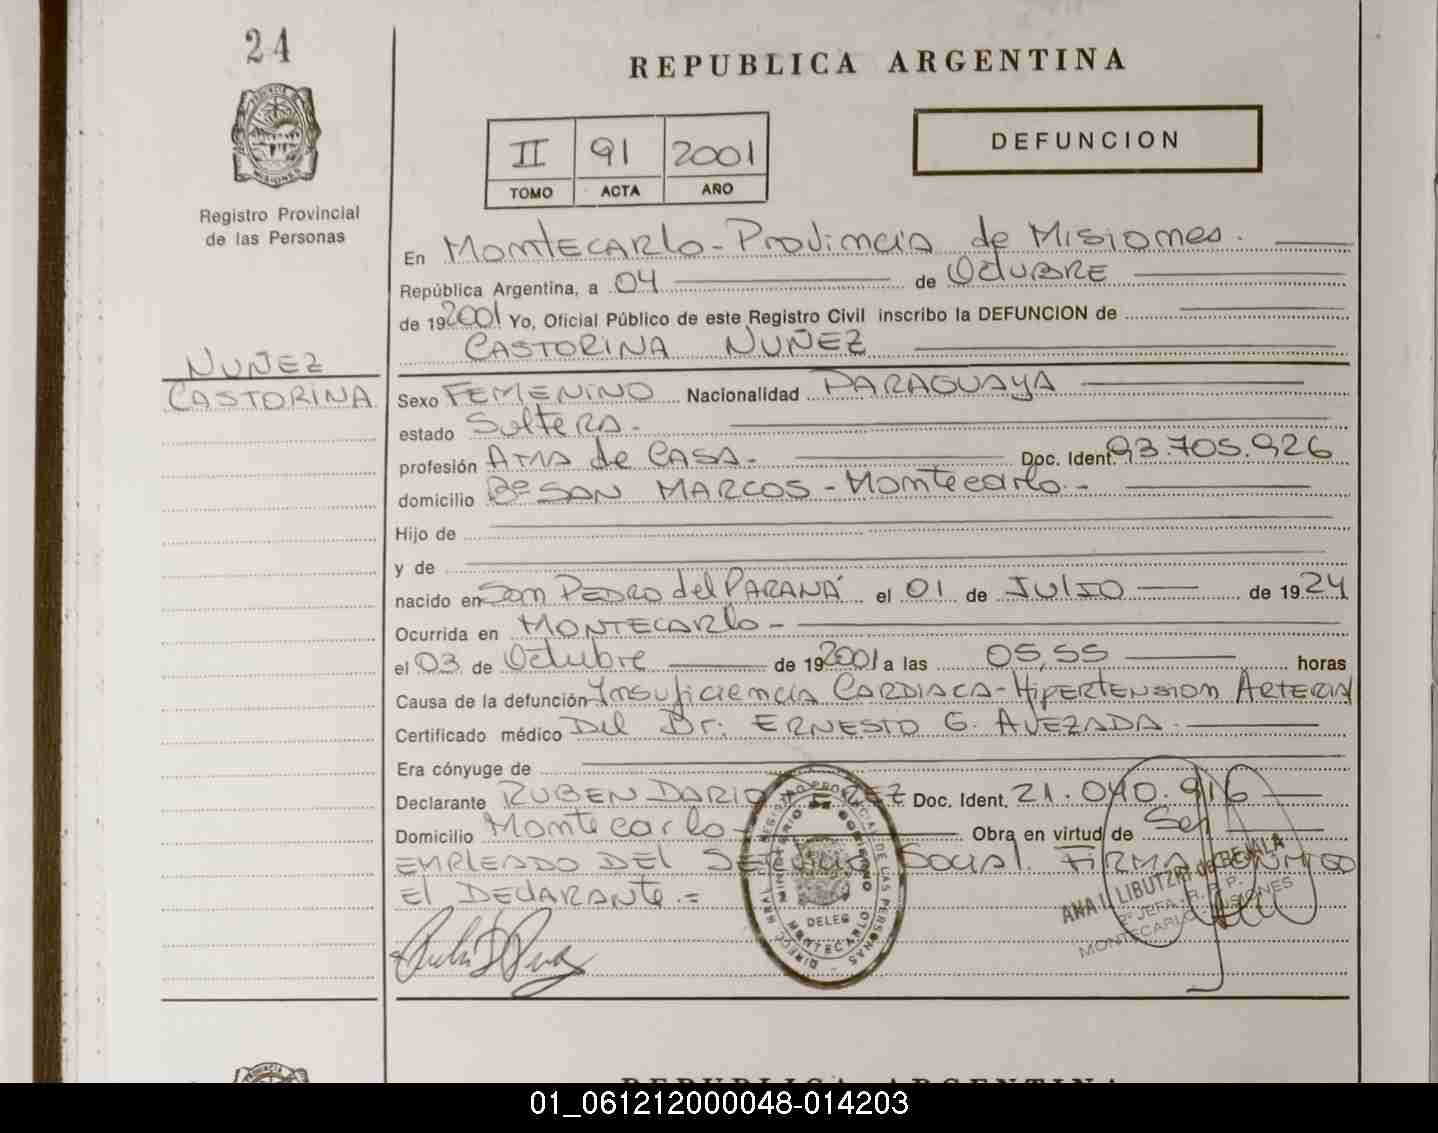 24
REPUBLICA ARGENTINA
PROVINCIA DE
MISIONES
Registro Provincial
de las Personas
II 91 2001
TOMO ACTA AÑO
DEFUNCION
En Montecarlo - Provincia de Misiones.
República Argentina, a 04 de Octubre
de 192001 Yo, Oficial Público de este Registro Civil inscribo la DEFUNCION de
CASTORINA NUÑEZ
NUÑEZ
CASTORINA
Sexo FEMENINO Nacionalidad PARAGUAYA
estado Soltera.
profesión Ama de CASA. Doc. Ident. 93.705.926
domicilio Bº SAN MARCOS - Montecarlo.-
Hijo de
y de
nacido en San PEDRO del PARANÁ el 01 de JULIO de 1924
Ocurrida en MONTECARlo -
el 03 de Octubre de 192001 a las 05,55 horas
Causa de la defunción Insuficiencia CARDIACA - HIPERTENSION ARTERIAl
Certificado médico Del Dr: ERNESTO G. AVEZADA.
Era cónyuge de
Declarante RUBEN DARIO Doc. Ident. 21.040.916
Domicilio Montecarlo - Obra en virtud de Ser
EMPLEADO DEL Servicio Social. FIRMA CONMIGO
El DEClARANTE.=
DIREC. GRAL. REGISTRO PROVINCIAL DE LAS PERSONAS
MINISTERIO DE GOBIERNO
DELEG
MONTECARLO
ANA L. LIBUTZKI de BEJALA
2º JEFA R. P. P.
MONTECARLO MISIONES
REPUBLICA ARGENTINA
01_061212000048-014203